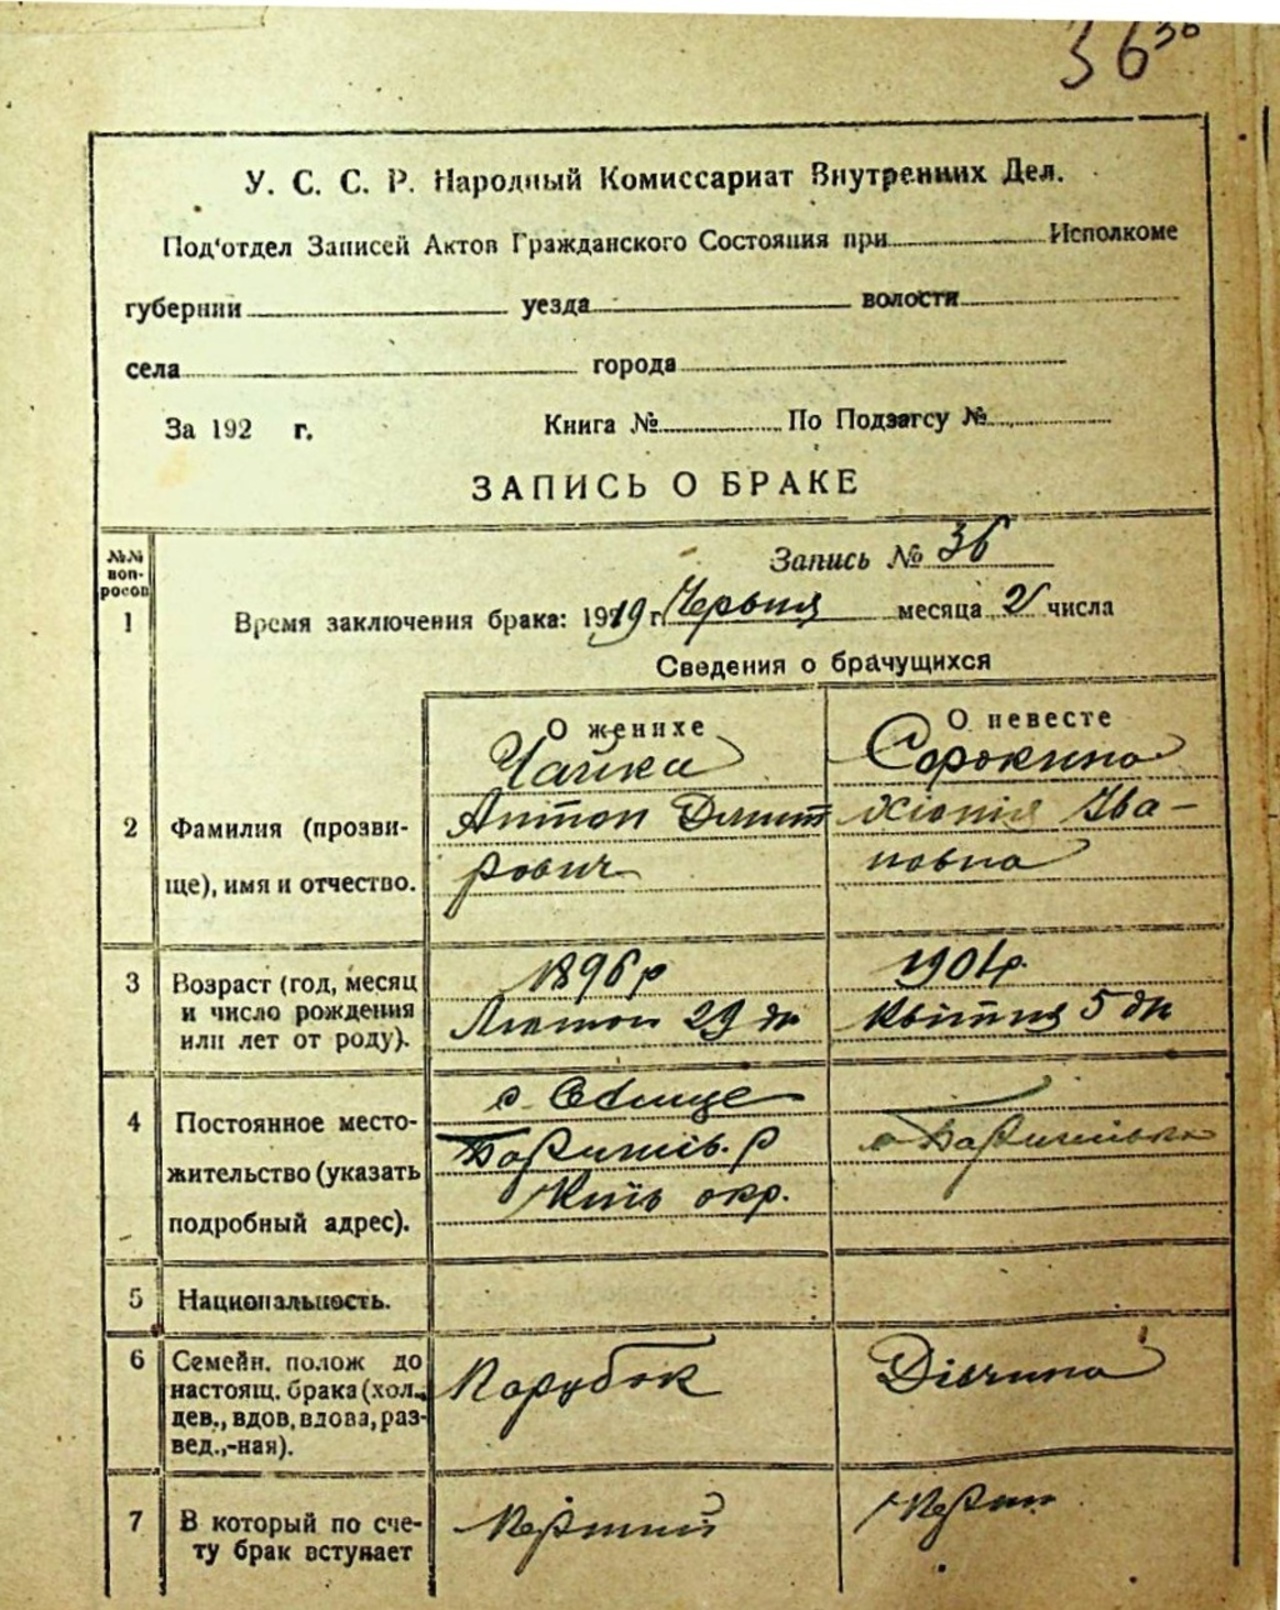 36 36
У. С. С. Р. Народный Комиссариат Внутренних Дел.
Под'отдел Записей Актов Гражданского Состояния при Исполкоме
губернии уезда волости
села города
За 192 г. Книга № По Подзагсу №
ЗАПИСЬ О БРАКЕ
№№ воп-
росов
Запись № 36
1 Время заключения брака: 1919 г. Червня месяца 2 числа
Сведения о брачущихся
О женихе О невесте
Чайка Сорокина
2 Фамилия (прозви- Антон Дмит Хіонія Іва-
ще), имя и отчество. рович новна
3 Возраст (год, месяц 1896 р 1901 р.
и число рождения Лютого 29 дн Квітня 5 дн
или лет от роду).
с.
4 Постоянное место- Баришів. р с Баришівка
жительство (указать Київ окр.
подробный адрес).
5 Национальность.
6 Семейн. полож до Парубок Дівчина
настоящ. брака (хол.,
дев., вдов, вдова, раз-
вед.,-ная).
7 В который по сче- Перший
ту брак вступает